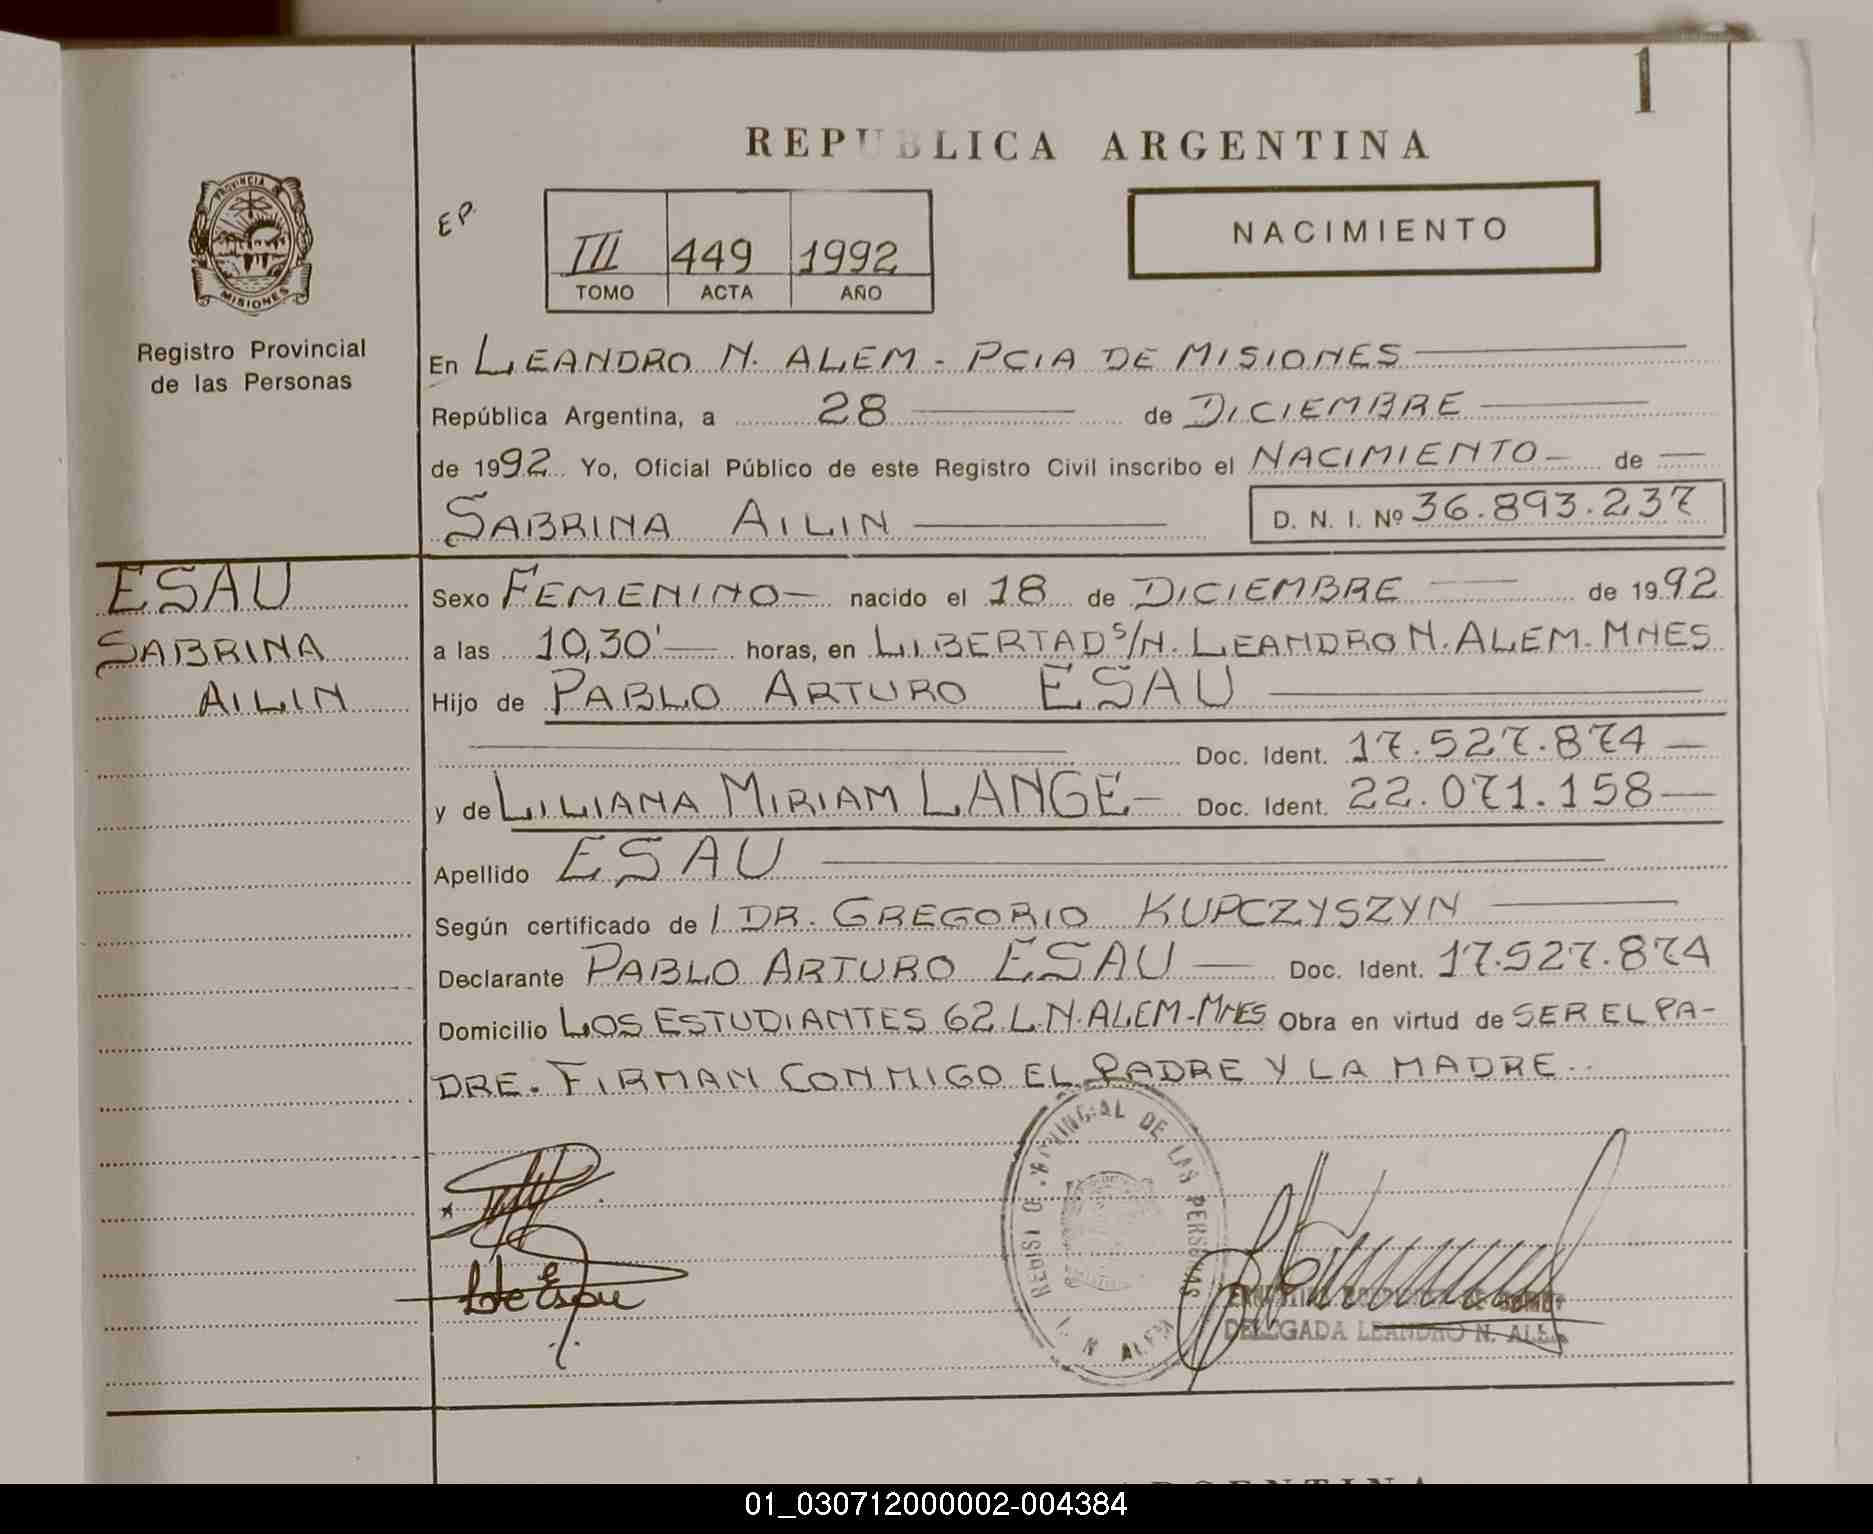 1
REPUBLICA ARGENTINA
PROVINCIA DE
MISIONES
Registro Provincial
de las Personas
EP.
III 449 1992
TOMO ACTA AÑO
NACIMIENTO
En LEANDRO N. ALEM - PCIA DE MISIONES
República Argentina, a 28 de DICIEMBRE
de 1992 Yo, Oficial Público de este Registro Civil inscribo el NACIMIENTO de
SABRINA AILIN D. N. I. Nº 36.893.237
ESAU
SABRINA
AILIN
Sexo FEMENINO nacido el 18 de DICIEMBRE de 1992
a las 10,30' horas, en LIBERTAD S/N. LEANDRO N. ALEM. MNES
Hijo de PABLO ARTURO ESAU
Doc. Ident. 17.527.874
y de LILIANA MIRIAM LANGE Doc. Ident. 22.071.158
Apellido ESAU
Según certificado de / DR. GREGORIO KUPCZYSZYN
Declarante PABLO ARTURO ESAU Doc. Ident. 17.527.874
Domicilio LOS ESTUDIANTES 62 L.N. ALEM-MNES Obra en virtud de SER EL PA-
DRE. FIRMAN CONMIGO EL PADRE Y LA MADRE.
DE LAS PERSONAS
L. N. ALEM
DELEGADA LEANDRO N. ALEM
01_030712000002-004384